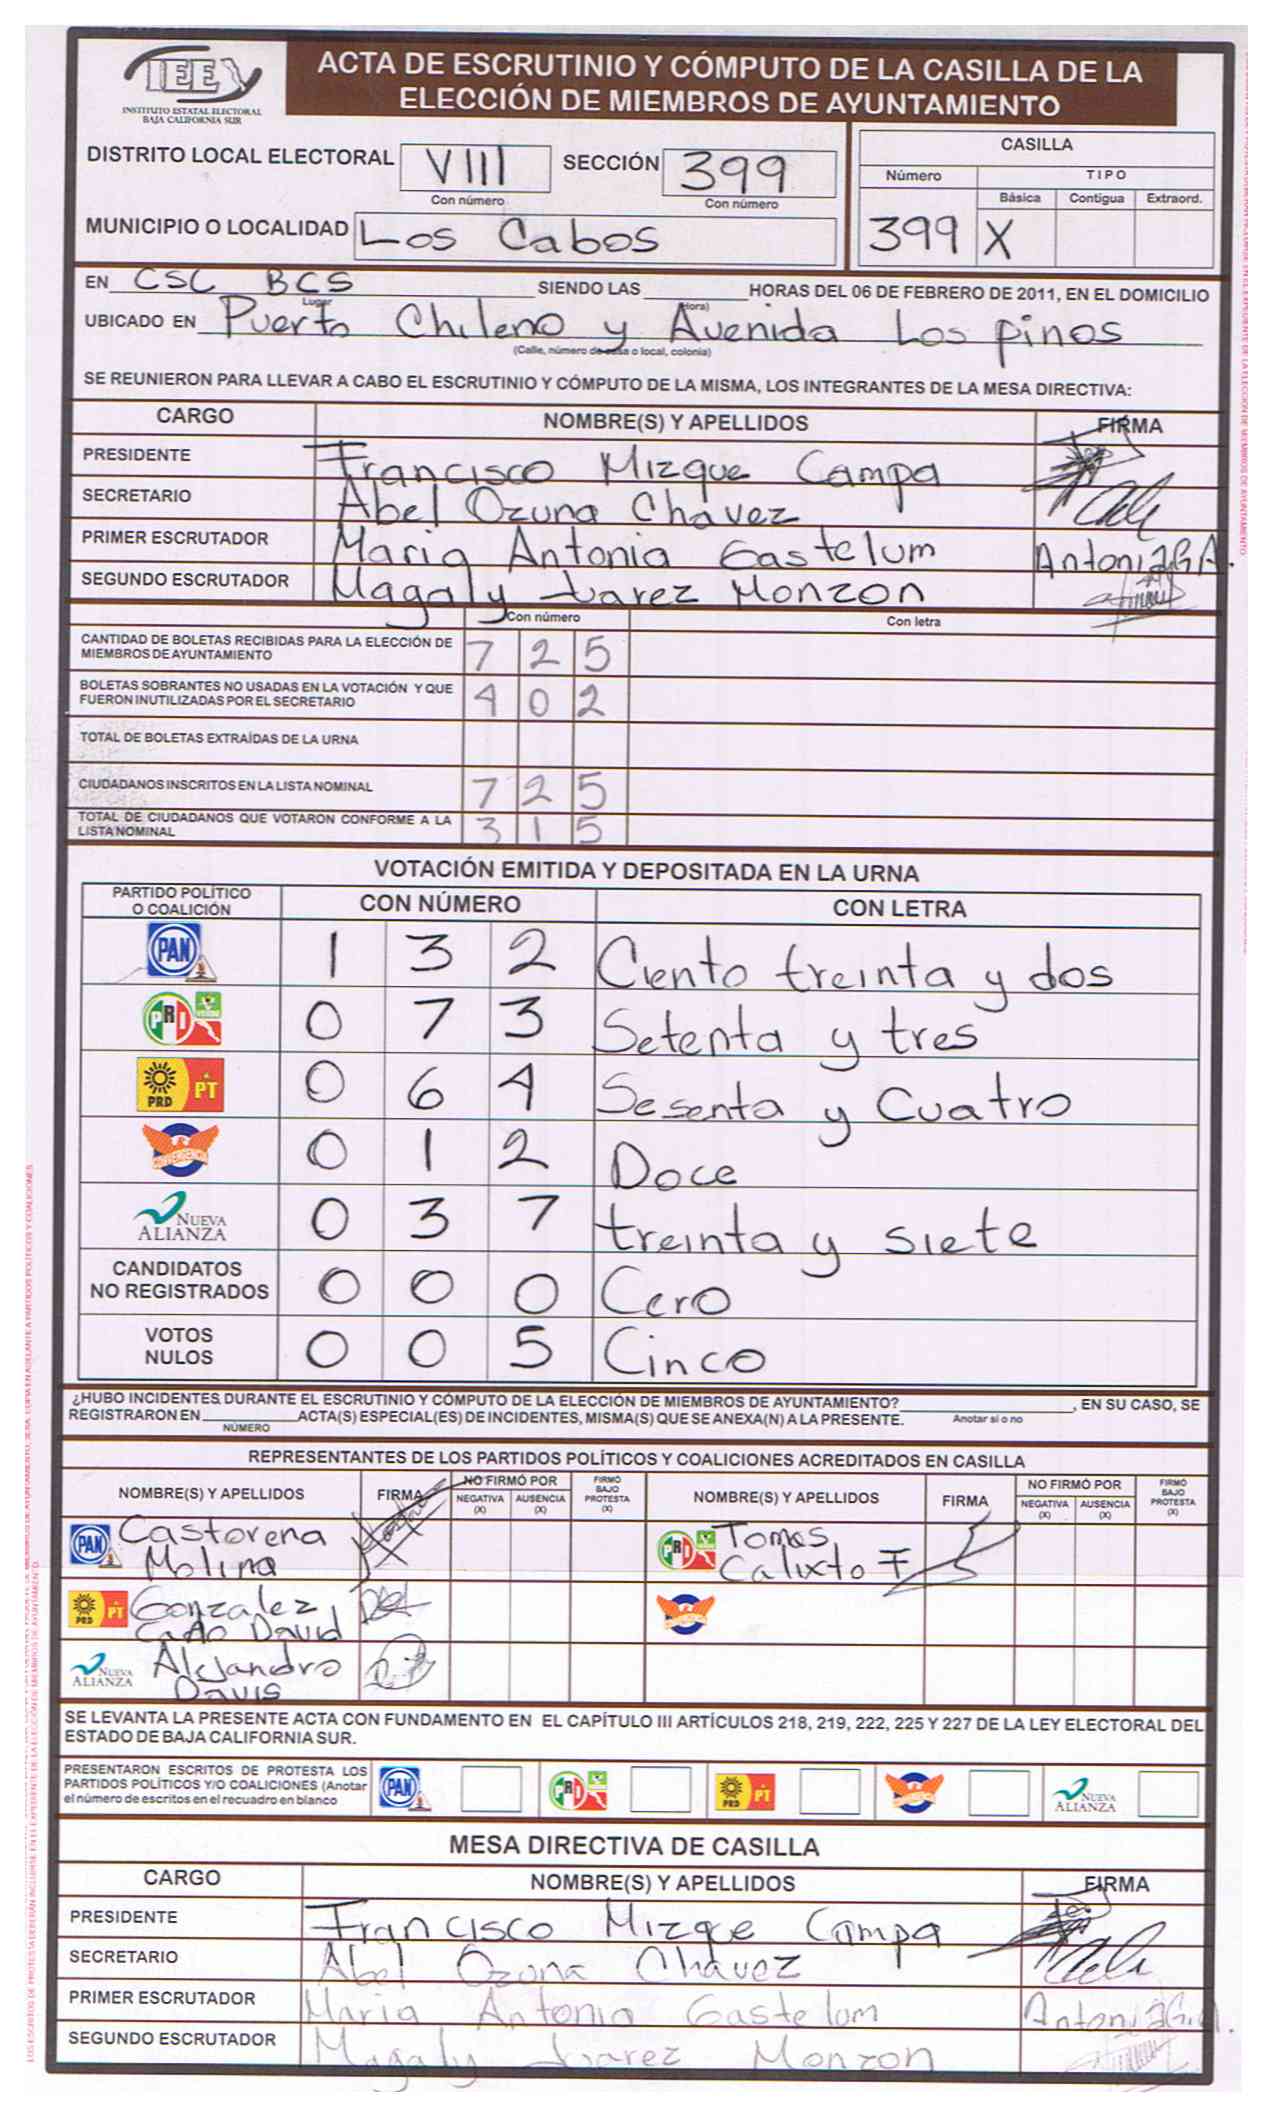 IEE
INSTITUTO ESTATAL ELECTORAL
BAJA CALIFORNIA SUR
ACTA DE ESCRUTINIO Y CÓMPUTO DE LA CASILLA DE LA
ELECCIÓN DE MIEMBROS DE AYUNTAMIENTO
DISTRITO LOCAL ELECTORAL VIII SECCIÓN 399
Con número Con número
MUNICIPIO O LOCALIDAD Los Cabos
CASILLA
Número TIPO
Básica Contigua Extraord.
399 X
EN CSL BCS SIENDO LAS HORAS DEL 06 DE FEBRERO DE 2011, EN EL DOMICILIO
Lugar (Hora)
UBICADO EN Puerto Chileno y Avenida Los pinos
(Calle, número de casa o local, colonia)
SE REUNIERON PARA LLEVAR A CABO EL ESCRUTINIO Y CÓMPUTO DE LA MISMA, LOS INTEGRANTES DE LA MESA DIRECTIVA:
CARGO NOMBRE(S) Y APELLIDOS FIRMA
PRESIDENTE Francisco Mizque Campa
SECRETARIO Abel Ozuna Chavez
PRIMER ESCRUTADOR Maria Antonia Gastelum Antonia G.A.
SEGUNDO ESCRUTADOR Magaly Juarez Monzon
Con número Con letra
CANTIDAD DE BOLETAS RECIBIDAS PARA LA ELECCIÓN DE
MIEMBROS DE AYUNTAMIENTO 7 2 5
BOLETAS SOBRANTES NO USADAS EN LA VOTACIÓN Y QUE
FUERON INUTILIZADAS POR EL SECRETARIO 4 0 2
TOTAL DE BOLETAS EXTRAÍDAS DE LA URNA
CIUDADANOS INSCRITOS EN LA LISTA NOMINAL 7 2 5
TOTAL DE CIUDADANOS QUE VOTARON CONFORME A LA
LISTA NOMINAL 3 1 5
VOTACIÓN EMITIDA Y DEPOSITADA EN LA URNA
PARTIDO POLÍTICO
O COALICIÓN CON NÚMERO CON LETRA
PAN 1 3 2 Ciento treinta y dos
PRI VERDE 0 7 3 Setenta y tres
PRD PT 0 6 4 Sesenta y Cuatro
CONVERGENCIA 0 1 2 Doce
NUEVA
ALIANZA 0 3 7 treinta y siete
CANDIDATOS
NO REGISTRADOS 0 0 0 Cero
VOTOS
NULOS 0 0 5 Cinco
¿HUBO INCIDENTES DURANTE EL ESCRUTINIO Y CÓMPUTO DE LA ELECCIÓN DE MIEMBROS DE AYUNTAMIENTO? , EN SU CASO, SE
REGISTRARON EN ACTA(S) ESPECIAL(ES) DE INCIDENTES, MISMA(S) QUE SE ANEXA(N) A LA PRESENTE. Anotar si o no
NÚMERO
REPRESENTANTES DE LOS PARTIDOS POLÍTICOS Y COALICIONES ACREDITADOS EN CASILLA
NOMBRE(S) Y APELLIDOS FIRMA NO FIRMÓ POR NEGATIVA (X) AUSENCIA (X) FIRMÓ BAJO PROTESTA (X) NOMBRE(S) Y APELLIDOS FIRMA NO FIRMÓ POR NEGATIVA (X) AUSENCIA (X) FIRMÓ BAJO PROTESTA (X)
PAN Castorena
Molina
PRI Tomas
Calixto F
PRD PT Gonzalez
David
NUEVA
ALIANZA Alejandro
Davis
SE LEVANTA LA PRESENTE ACTA CON FUNDAMENTO EN EL CAPÍTULO III ARTÍCULOS 218, 219, 222, 225 Y 227 DE LA LEY ELECTORAL DEL
ESTADO DE BAJA CALIFORNIA SUR.
PRESENTARON ESCRITOS DE PROTESTA LOS
PARTIDOS POLÍTICOS Y/O COALICIONES (Anotar
el número de escritos en el recuadro en blanco
PAN PRI PRD PT NUEVA
ALIANZA
MESA DIRECTIVA DE CASILLA
CARGO NOMBRE(S) Y APELLIDOS FIRMA
PRESIDENTE Francisco Mizque Campa
SECRETARIO Abel Ozuna Chavez
PRIMER ESCRUTADOR Maria Antonia Gastelum Antonia G.A.
SEGUNDO ESCRUTADOR Magaly Juarez Monzon